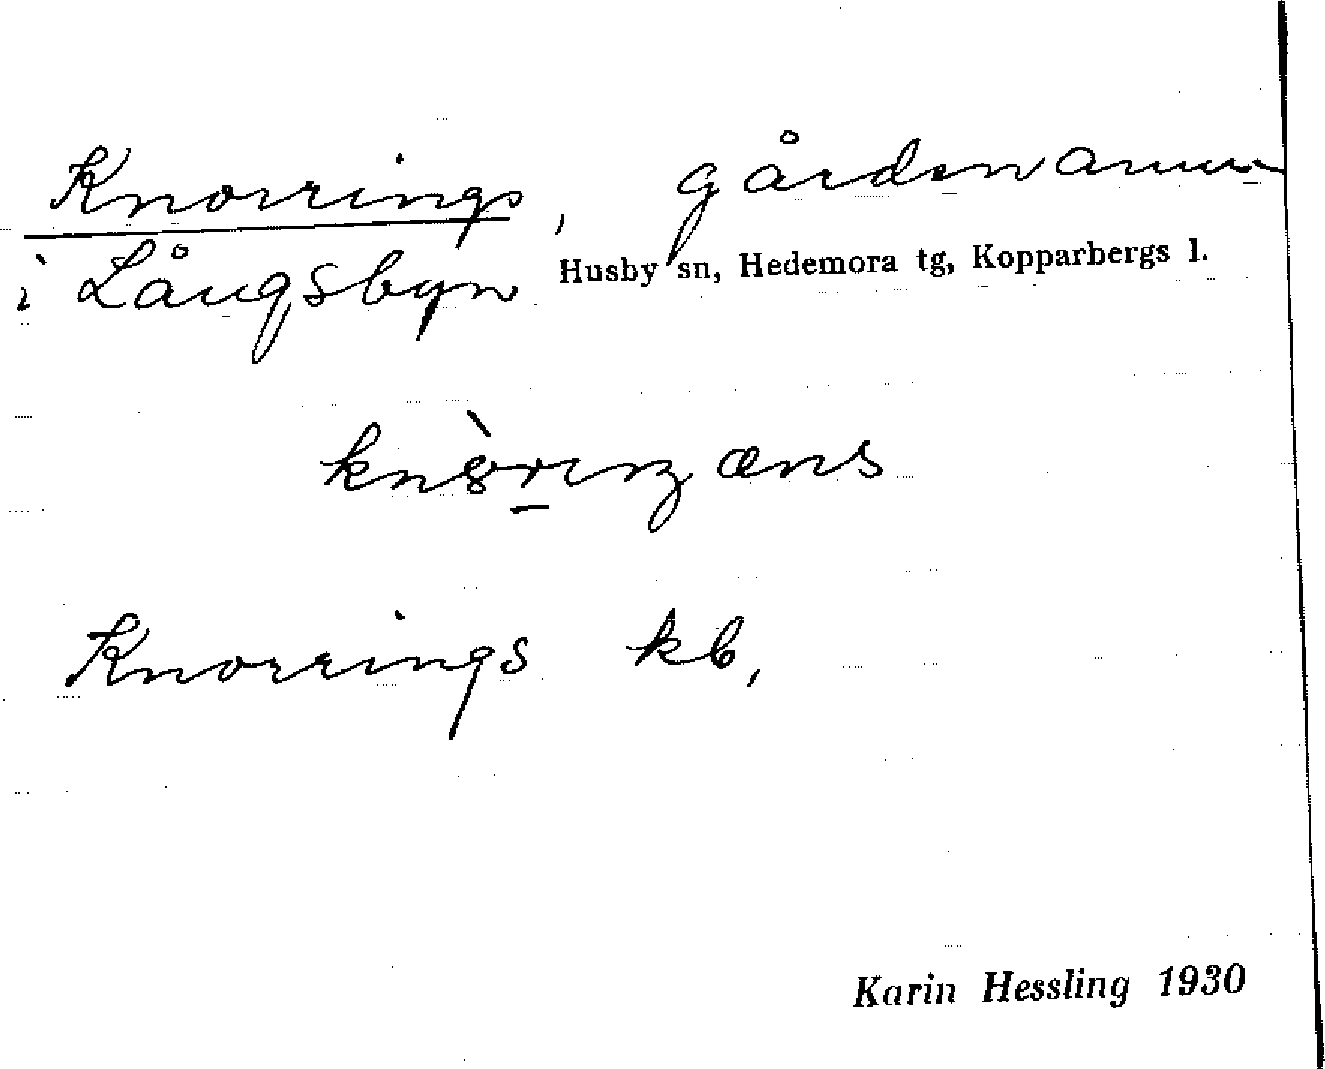 Knorrings, gårdsnamn
i Långsbyn Husby sn, Hedemora tg, Kopparbergs l.
Knorrings kb,
Karin Hessling 1930